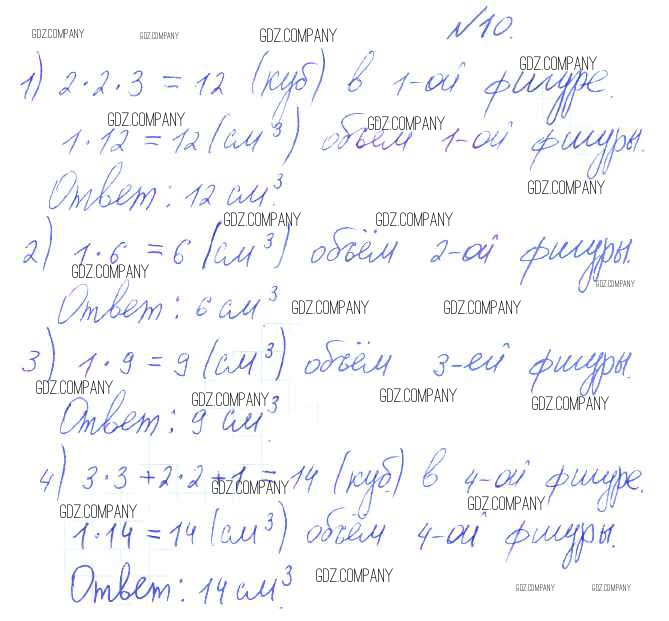 №10.
GDZ.COMPANY GDZ.COMPANY GDZ.COMPANY
GDZ.COMPANY
1) 2·2·3 = 12 (куб) в 1-ой фигуре.
GDZ.COMPANY GDZ.COMPANY
1·12 = 12 (см³) объём 1-ой фигуры.
Ответ: 12 см³.
GDZ.COMPANY
GDZ.COMPANY GDZ.COMPANY
2) 1·6 = 6 (см³) объём 2-ой фигуры.
GDZ.COMPANY GDZ.COMPANY
Ответ: 6 см³
GDZ.COMPANY GDZ.COMPANY
3) 1·9 = 9 (см³) объём 3-ей фигуры.
GDZ.COMPANY GDZ.COMPANY GDZ.COMPANY GDZ.COMPANY
Ответ: 9 см³.
4) 3·3 + 2·2 + 1 = 14 (куб.) в 4-ой фигуре.
GDZ.COMPANY GDZ.COMPANY
GDZ.COMPANY
1·14 = 14 (см³) объём 4-ой фигуры.
Ответ: 14 см³.
GDZ.COMPANY GDZ.COMPANY GDZ.COMPANY